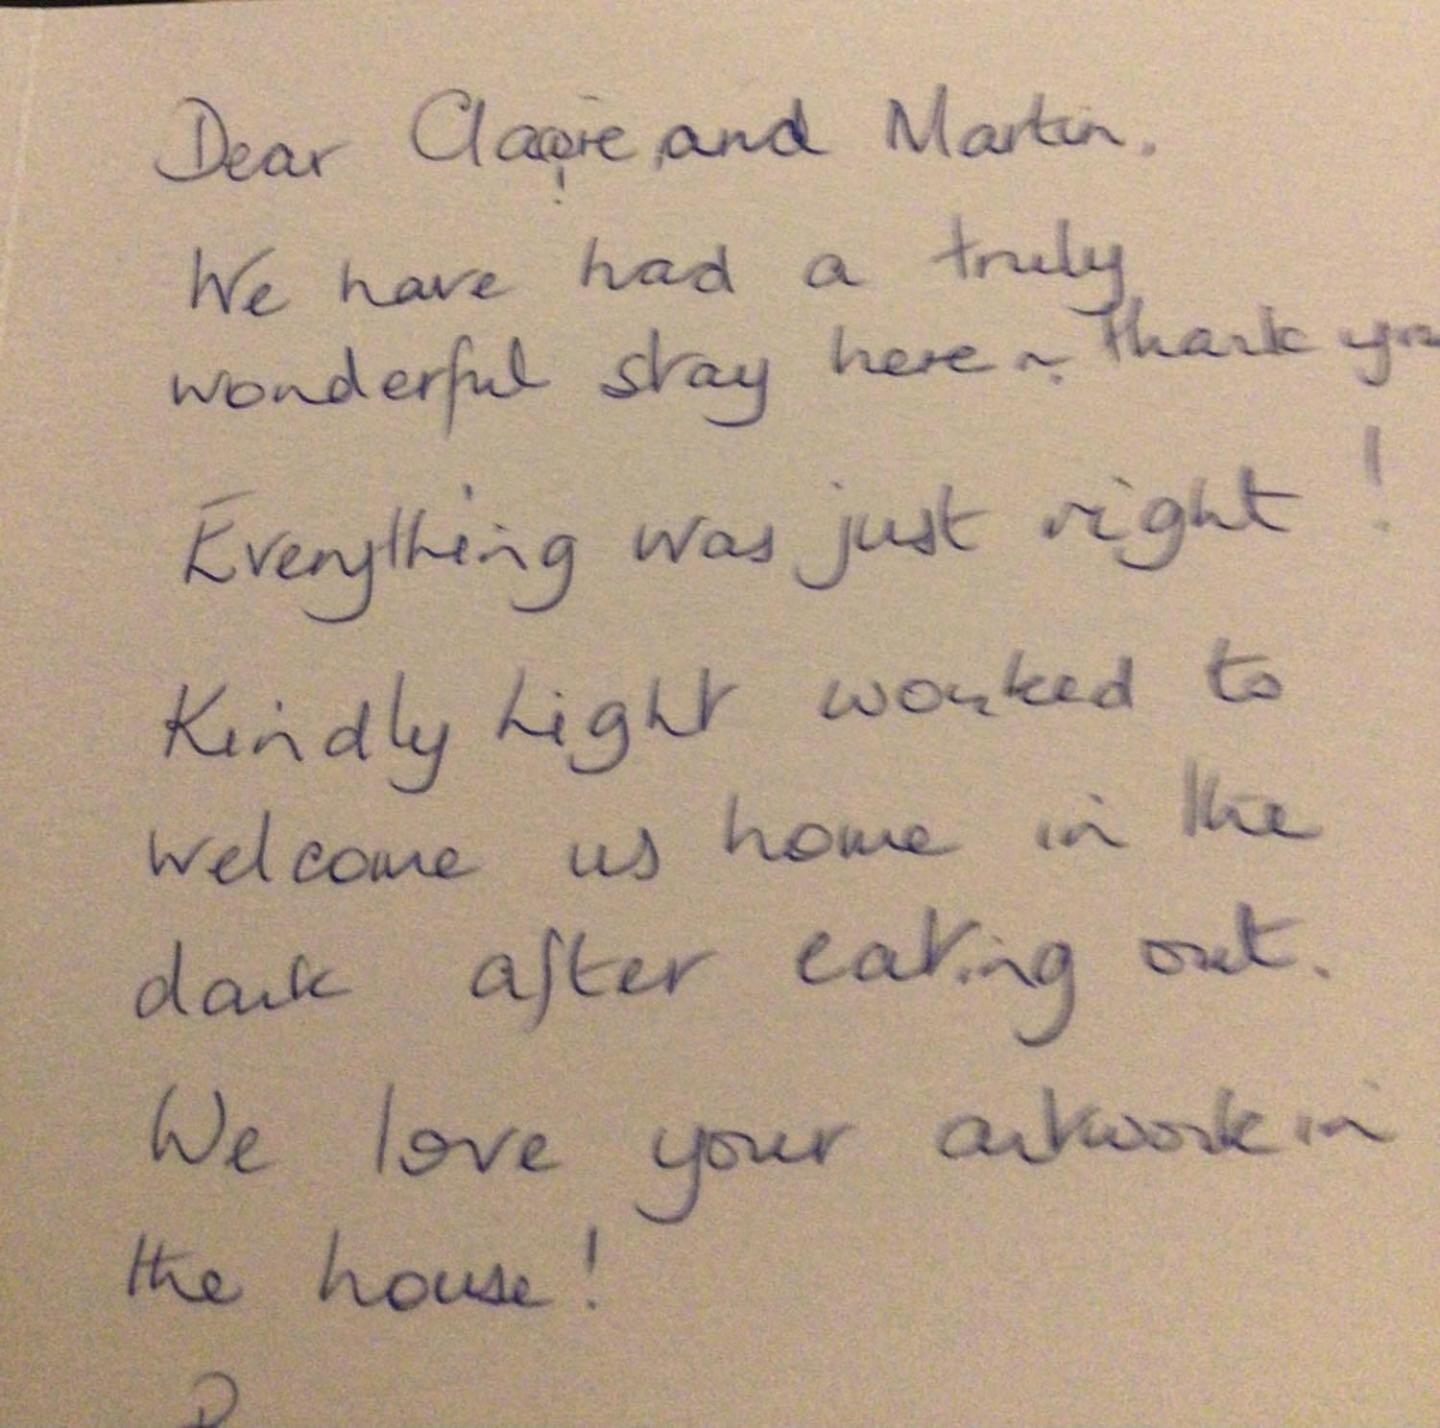 Dear Claire and Martin.
We have had a truly
wonderful stay here ~ Thank you
!
Everything was just right
Kindly Light worked to
welcome us home in the
dark after eating out.
We love your artwork in
the house!